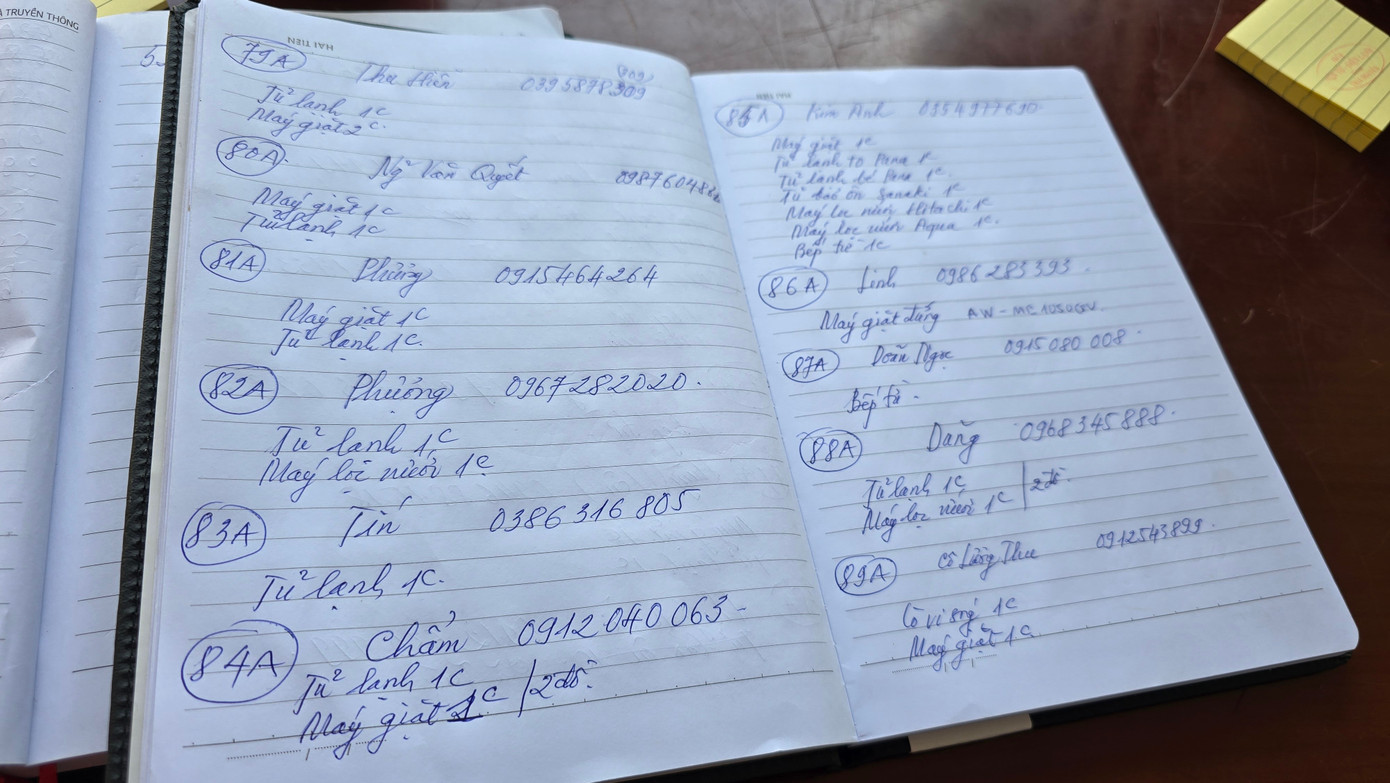 À TRUYỀN THÔNG
5
HẢI TIẾN
79A Thu Hiền 0395878309
(309)
Tủ lạnh 1C
Máy giặt 2C.
80A Ng Văn Quyết
Máy giặt 1C
Tủ lạnh 1C
81A Phương 0915464264
Máy giặt 1C
Tủ lạnh 1C.
82A Phượng 0967282020.
Tủ lạnh 1C
Máy lọc nước 1C
83A Tín 0386316805
Tủ lạnh 1C.
84A Chẩm 0912040063-
Tủ lạnh 1C
Máy giặt 1C | 2 đồ.
85A Kim Anh 0354977690.
Máy giặt 1C
Tủ lạnh to Pana 1C
Tủ lạnh bé Pana 1C.
Tủ bảo ôn Sanaki 1C
Máy lọc nước Hitachi 1C
Máy lọc nước Aqua 1C.
Bếp từ 1C
86A Linh 0986283393.
Máy giặt đứng
87A Doãn Ngọc 0915080008.
Bếp từ.
88A 0968345888.
Tủ lạnh 1C
Máy lọc nước 1C | 2 đồ.
89A Cô Lương Thu 0912543899.
Lò vi sóng 1C
Máy giặt 1C